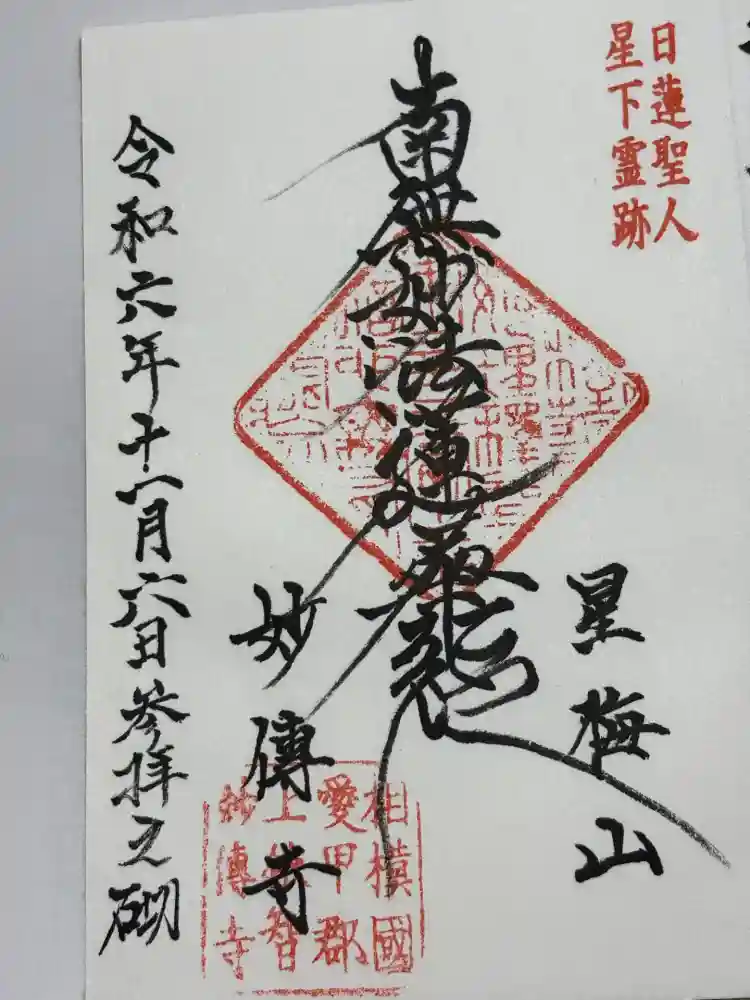 日蓮聖人
星下霊跡
南無妙法蓮華経
星梅山
妙傳寺
令和六年十一月六日参拝之砌
相模國
愛甲郡
上依智
妙傳寺